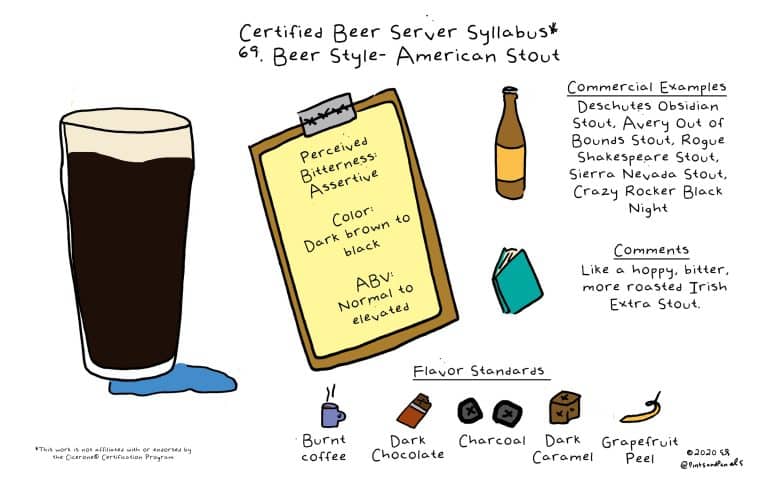 Certified Beer Server Syllabus*
69. Beer Style- American Stout
Perceived
Bitterness:
Assertive
Color:
Dark brown to
black
ABV:
Normal to
elevated
Commercial Examples
Deschutes Obsidian
Stout, Avery Out of
Bounds Stout, Rogue
Shakespeare Stout,
Sierra Nevada Stout,
Crazy Rocker Black
Night
Comments
Like a hoppy, bitter,
more roasted Irish
Extra Stout.
Flavor Standards
Burnt
coffee
Dark
Chocolate
Charcoal
Dark
Caramel
Grapefruit
Peel
*This work is not affiliated with or endorsed by
the Cicerone® Certification Program
©2020
@Pintsandpanels